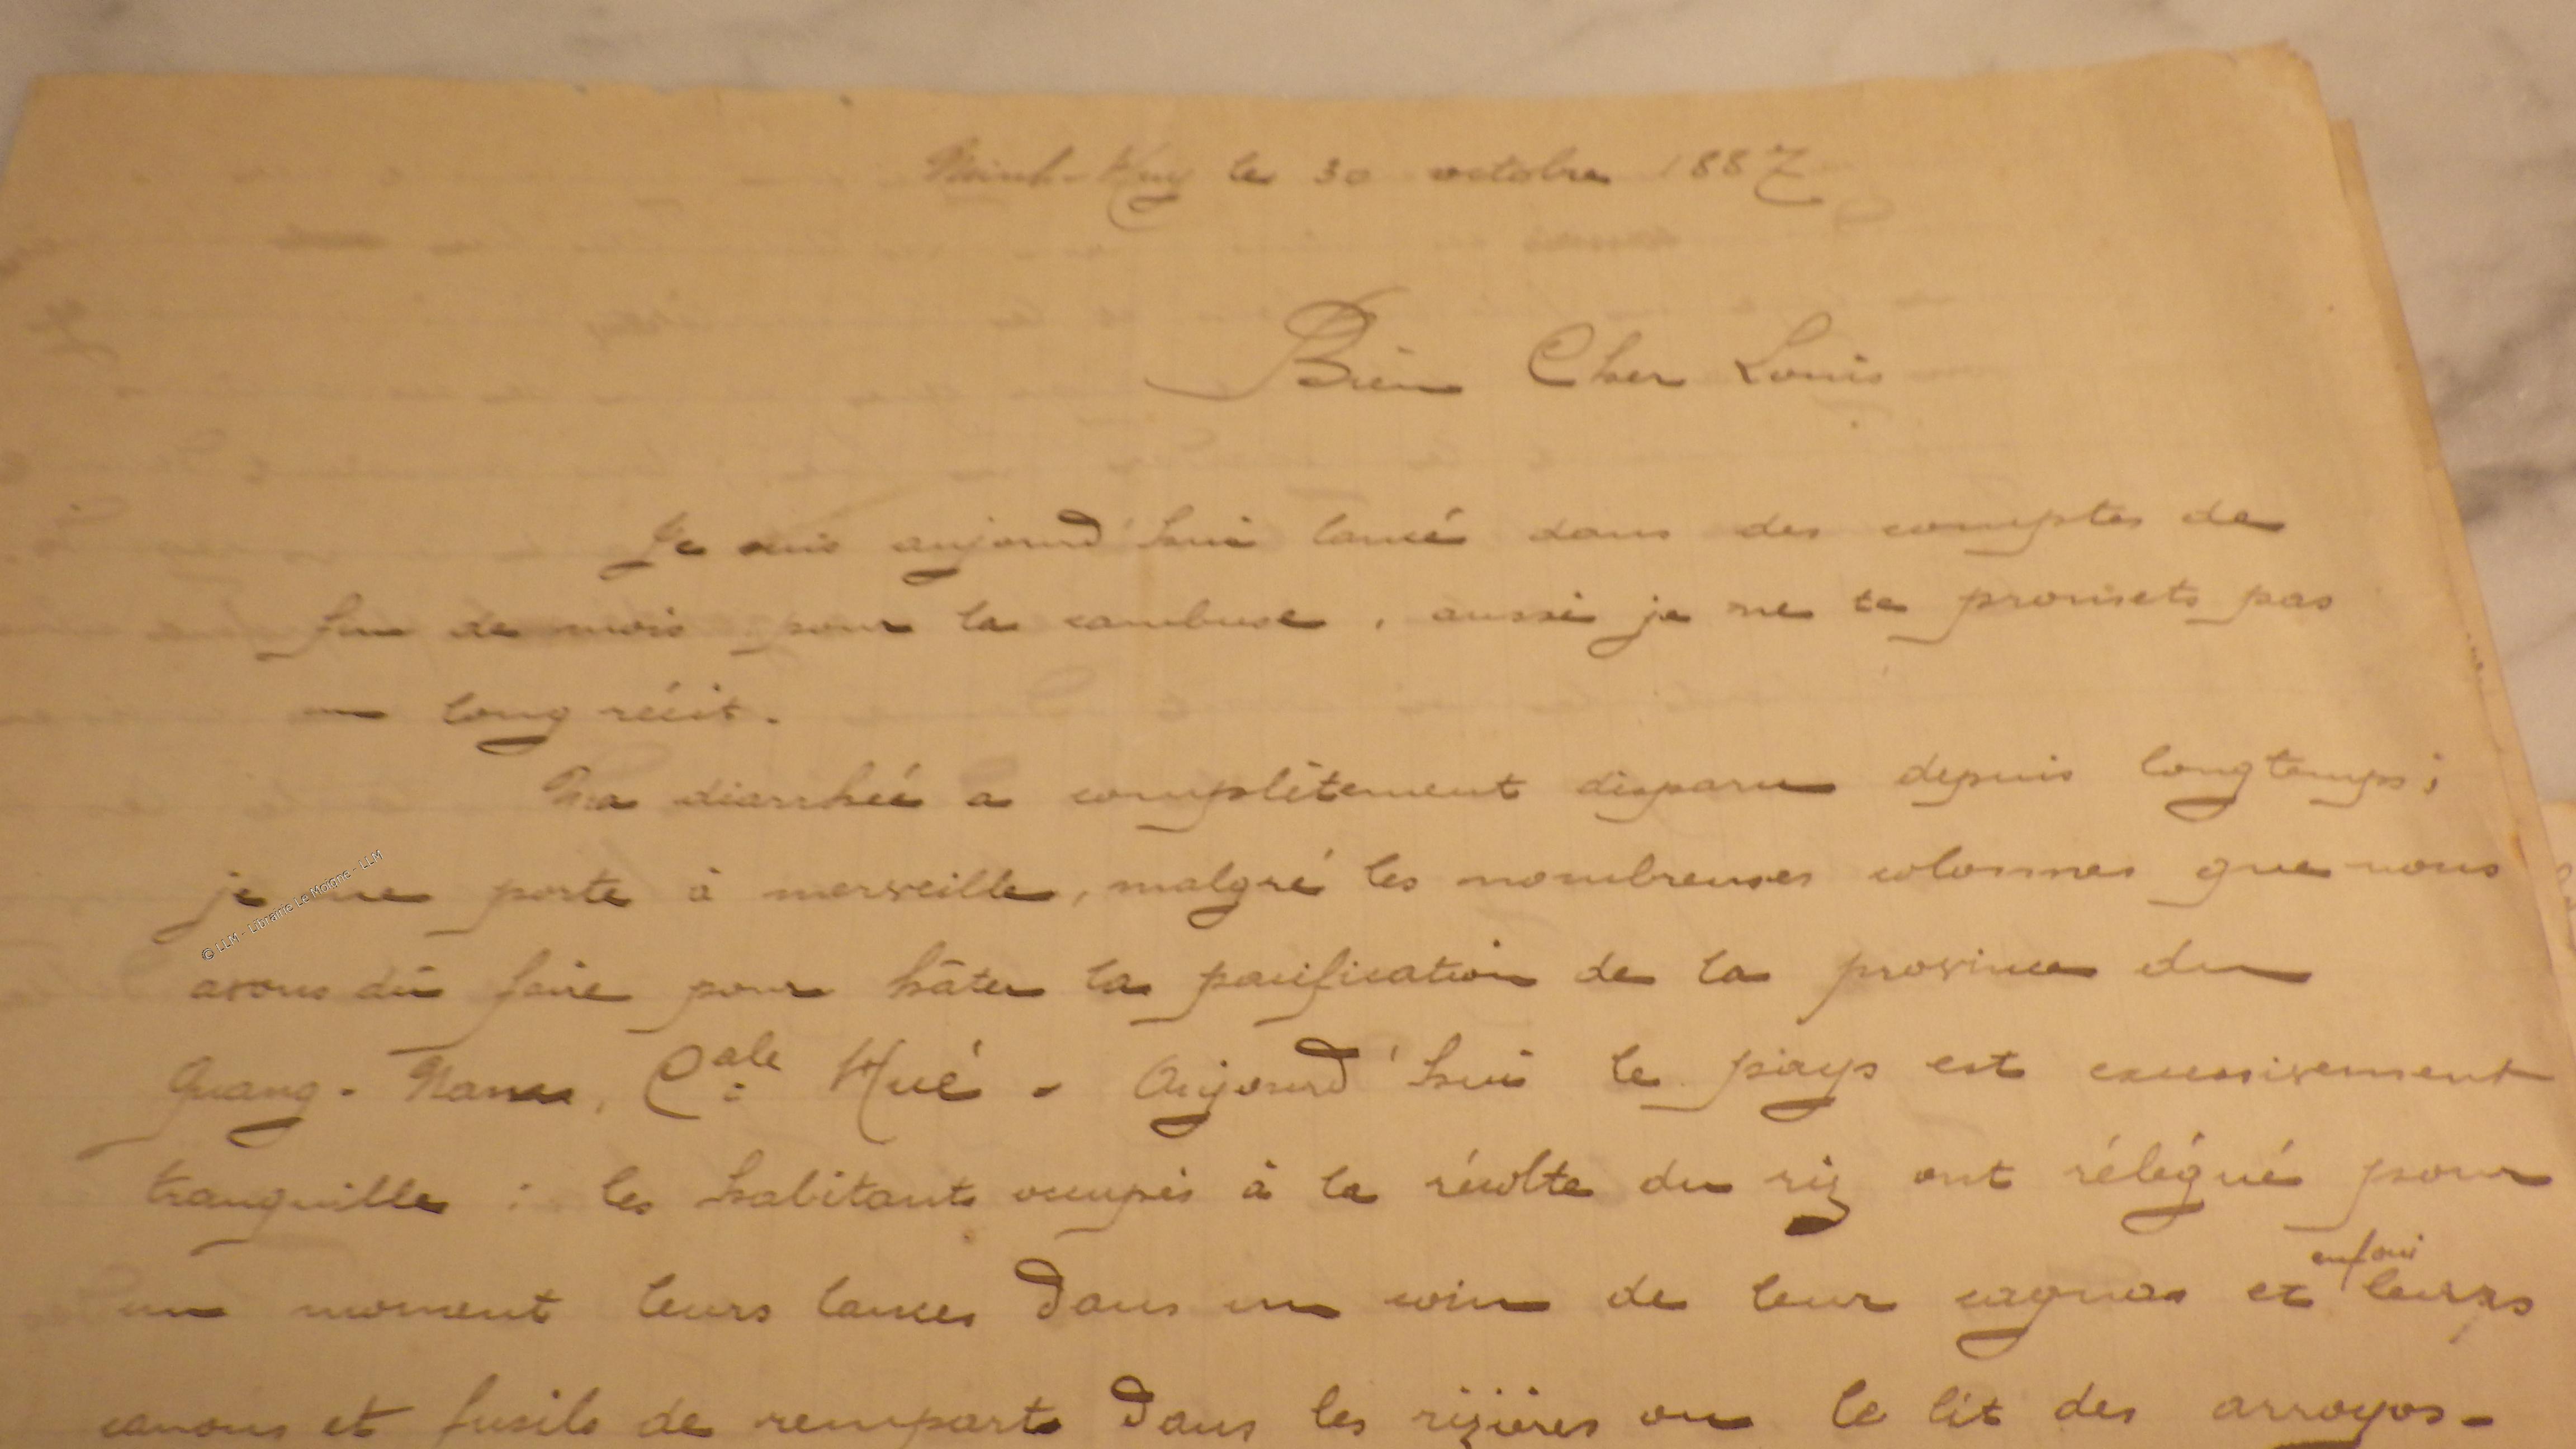 Minh-Huy le 30 octobre 1887
Bien Cher Louis
Je suis aujourd'hui lancé dans des comptes de
fin de mois pour la cambuse, aussi je ne te promets pas
un long récit.
Ma diarrhée a complètement disparu depuis longtemps;
je me porte à merveille, malgré les nombreuses colonnes que nous
avons dû faire pour hâter la pacification de la province du
Quang-Nam, Cale Hué - Aujourd'hui le pays est excessivement
tranquille : les habitants occupés à la récolte du riz ont rélégué pour
un moment leurs lances dans un coin de leur cagnas et enfoui leurs
canons et fusils de remparts dans les rizières ou le lit des arroyos-
© LLM - Librairie Le Moigne - LLM